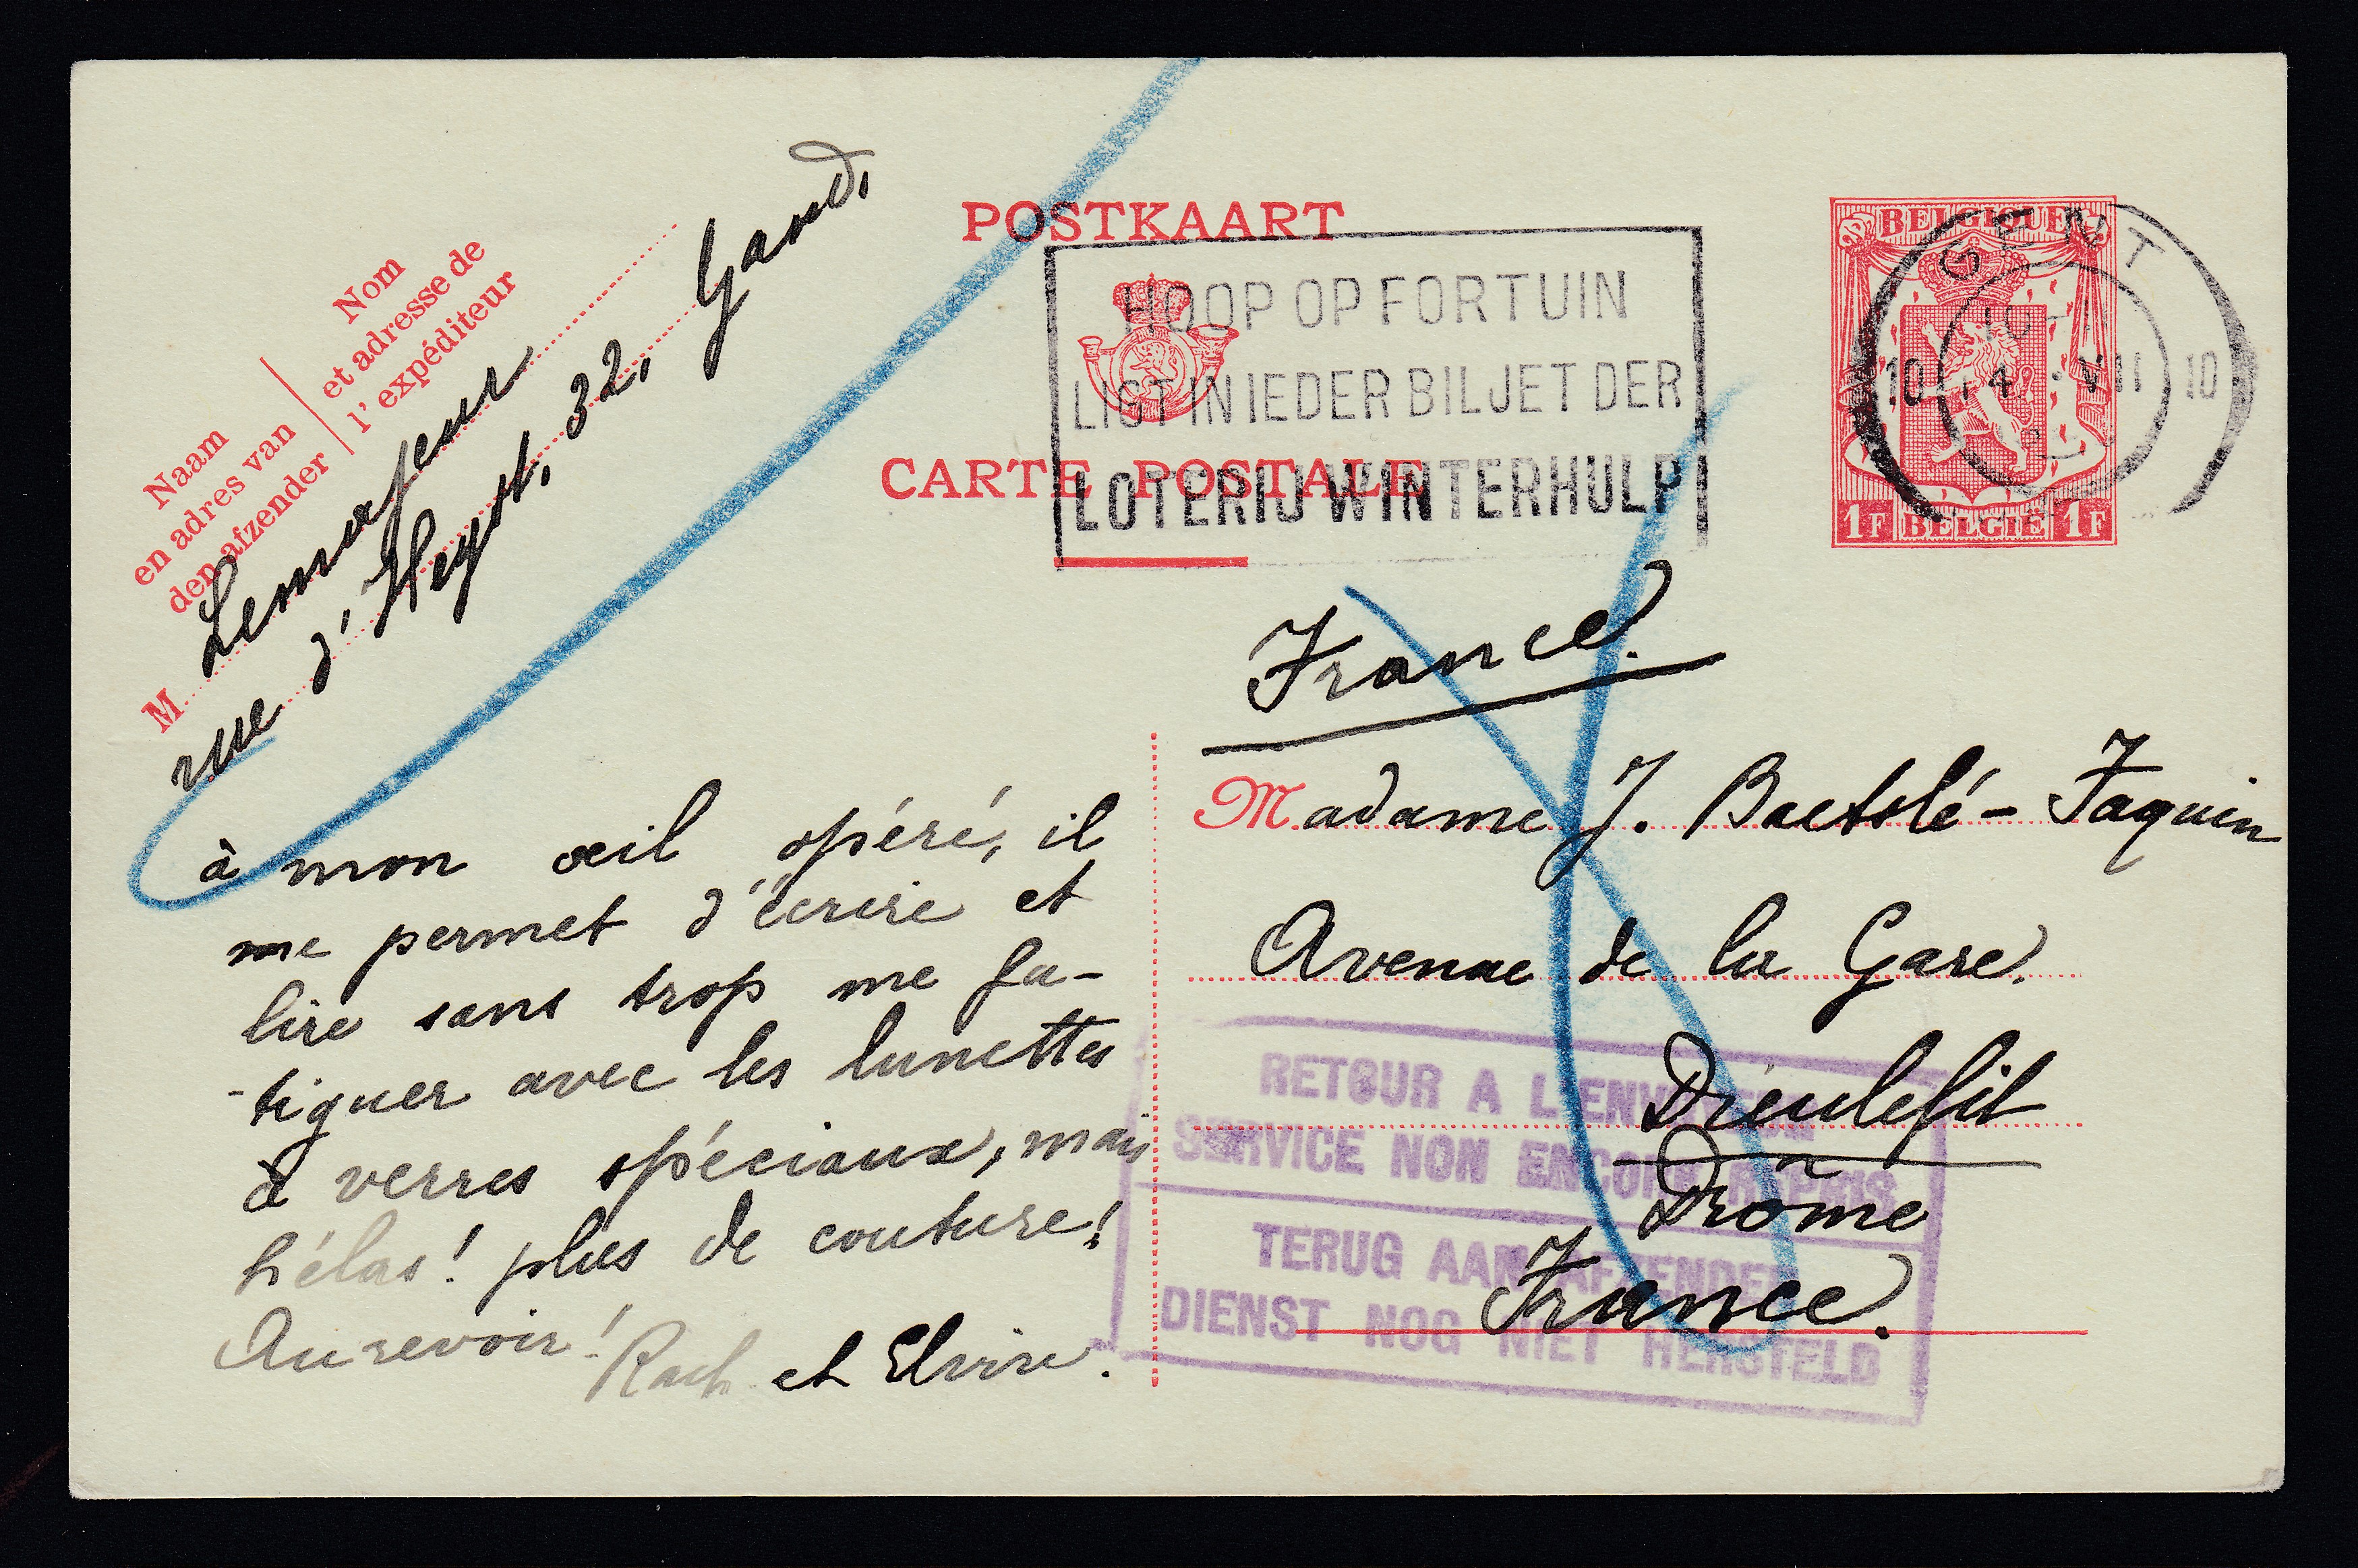 POSTKAART
CARTE POSTALE
HOOP OP FORTUIN
LIGT IN IEDER BILJET DER
LOTERIJ WINTERHULP
BELGIQUE
1F BELGIE 1F
GENT
10 14 VII 10
Naam
en adres van
den afzender
Nom
et adresse de
l'expéditeur
M
rue d'Heyst, 32, Gand,
à mon œil opéré, il
me permet d'écrire et
lire sans trop me fa-
-tiguer avec les lunettes
à verres spéciaux, mais
hélas! plus de couture!
Au revoir! Rach et Elvire.
France.
Madame J. Baetslé-Jaquin
Avenue de la Gare.
Dieulefit
Drôme
France.
RETOUR A L'ENVOYEUR
SERVICE NON ENCORE REPRIS
TERUG AAN AFZENDER
DIENST NOG NIET HERSTELD